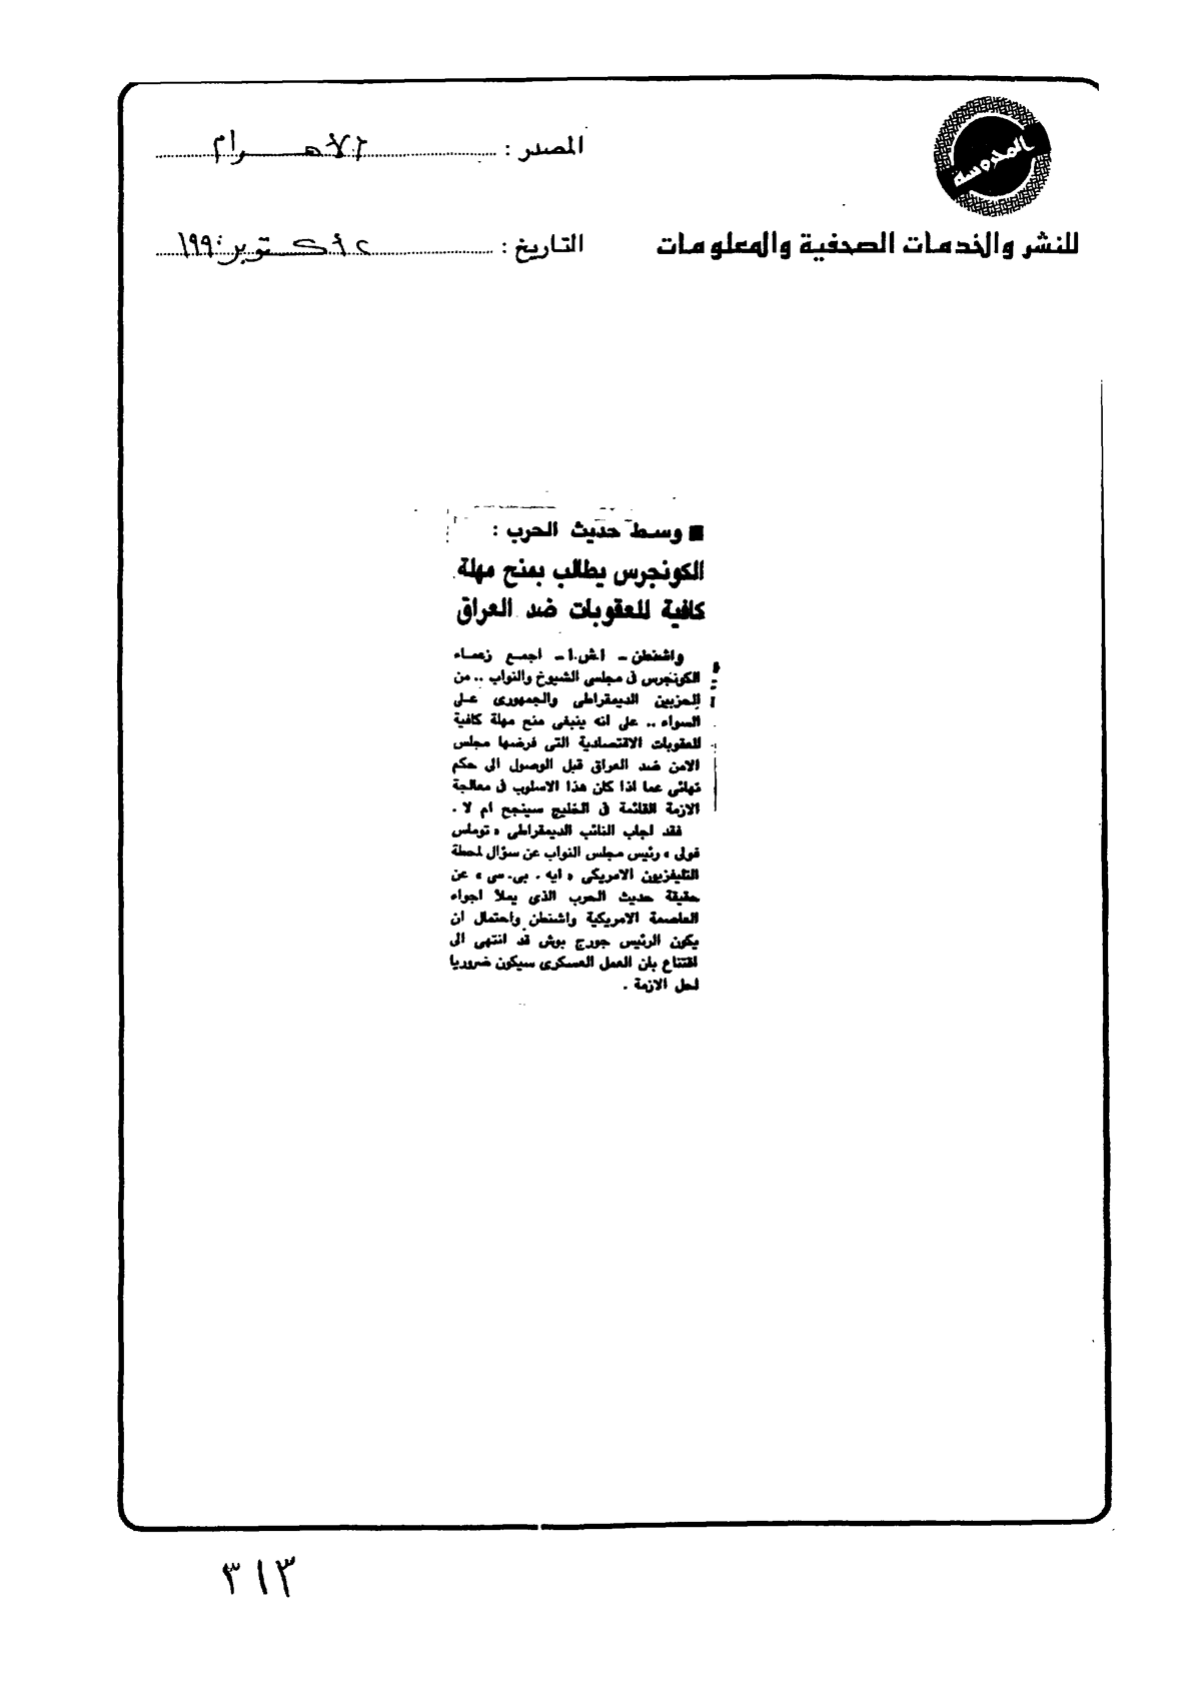 المحروسة
المصدر : الأهرام
للنشر والخدمات الصحفية والمعلومات
التاريخ : ٢ أكتوبر ١٩٩٠
■ وسط حديث الحرب :
الكونجرس يطالب بمنح مهلة
كافية للعقوبات ضد العراق
واشنطن - أ.ش.ا - اجمع زعماء
الكونجرس فى مجلسى الشيوخ والنواب .. من
الحزبين الديمقراطى والجمهورى على
السواء .. على انه ينبغى منح مهلة كافية
للعقوبات الاقتصادية التى فرضها مجلس
الامن ضد العراق قبل الوصول الى حكم
نهائى عما اذا كان هذا الاسلوب فى معالجة
الازمة القائمة فى الخليج سينجح ام لا .
فقد اجاب النائب الديمقراطى « توماس
فولى » رئيس مجلس النواب عن سؤال لمحطة
التليفزيون الامريكى « ايه . بى. سى » عن
حقيقة حديث الحرب الذى يملأ اجواء
العاصمة الامريكية واشنطن واحتمال ان
يكون الرئيس جورج بوش قد انتهى الى
اقتناع بان العمل العسكرى سيكون ضروريا
لحل الازمة .
٣١٣